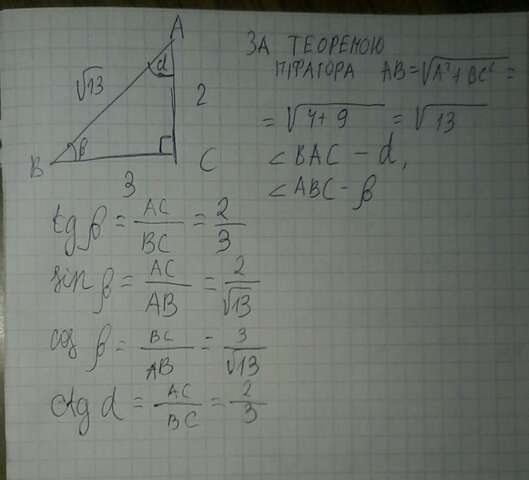 A
ЗА ТЕОРЕМОЮ
ПІФАГОРА AB=√A²+BC² =
d
√13
2
= √4+9 = √13
B
β
C
∠BAC - d,
3
∠ABC - β
tg β = AC/BC = 2/3
sin β = AC/AB = 2/√13
cos β = BC/AB = 3/√13
ctg d = AC/BC = 2/3